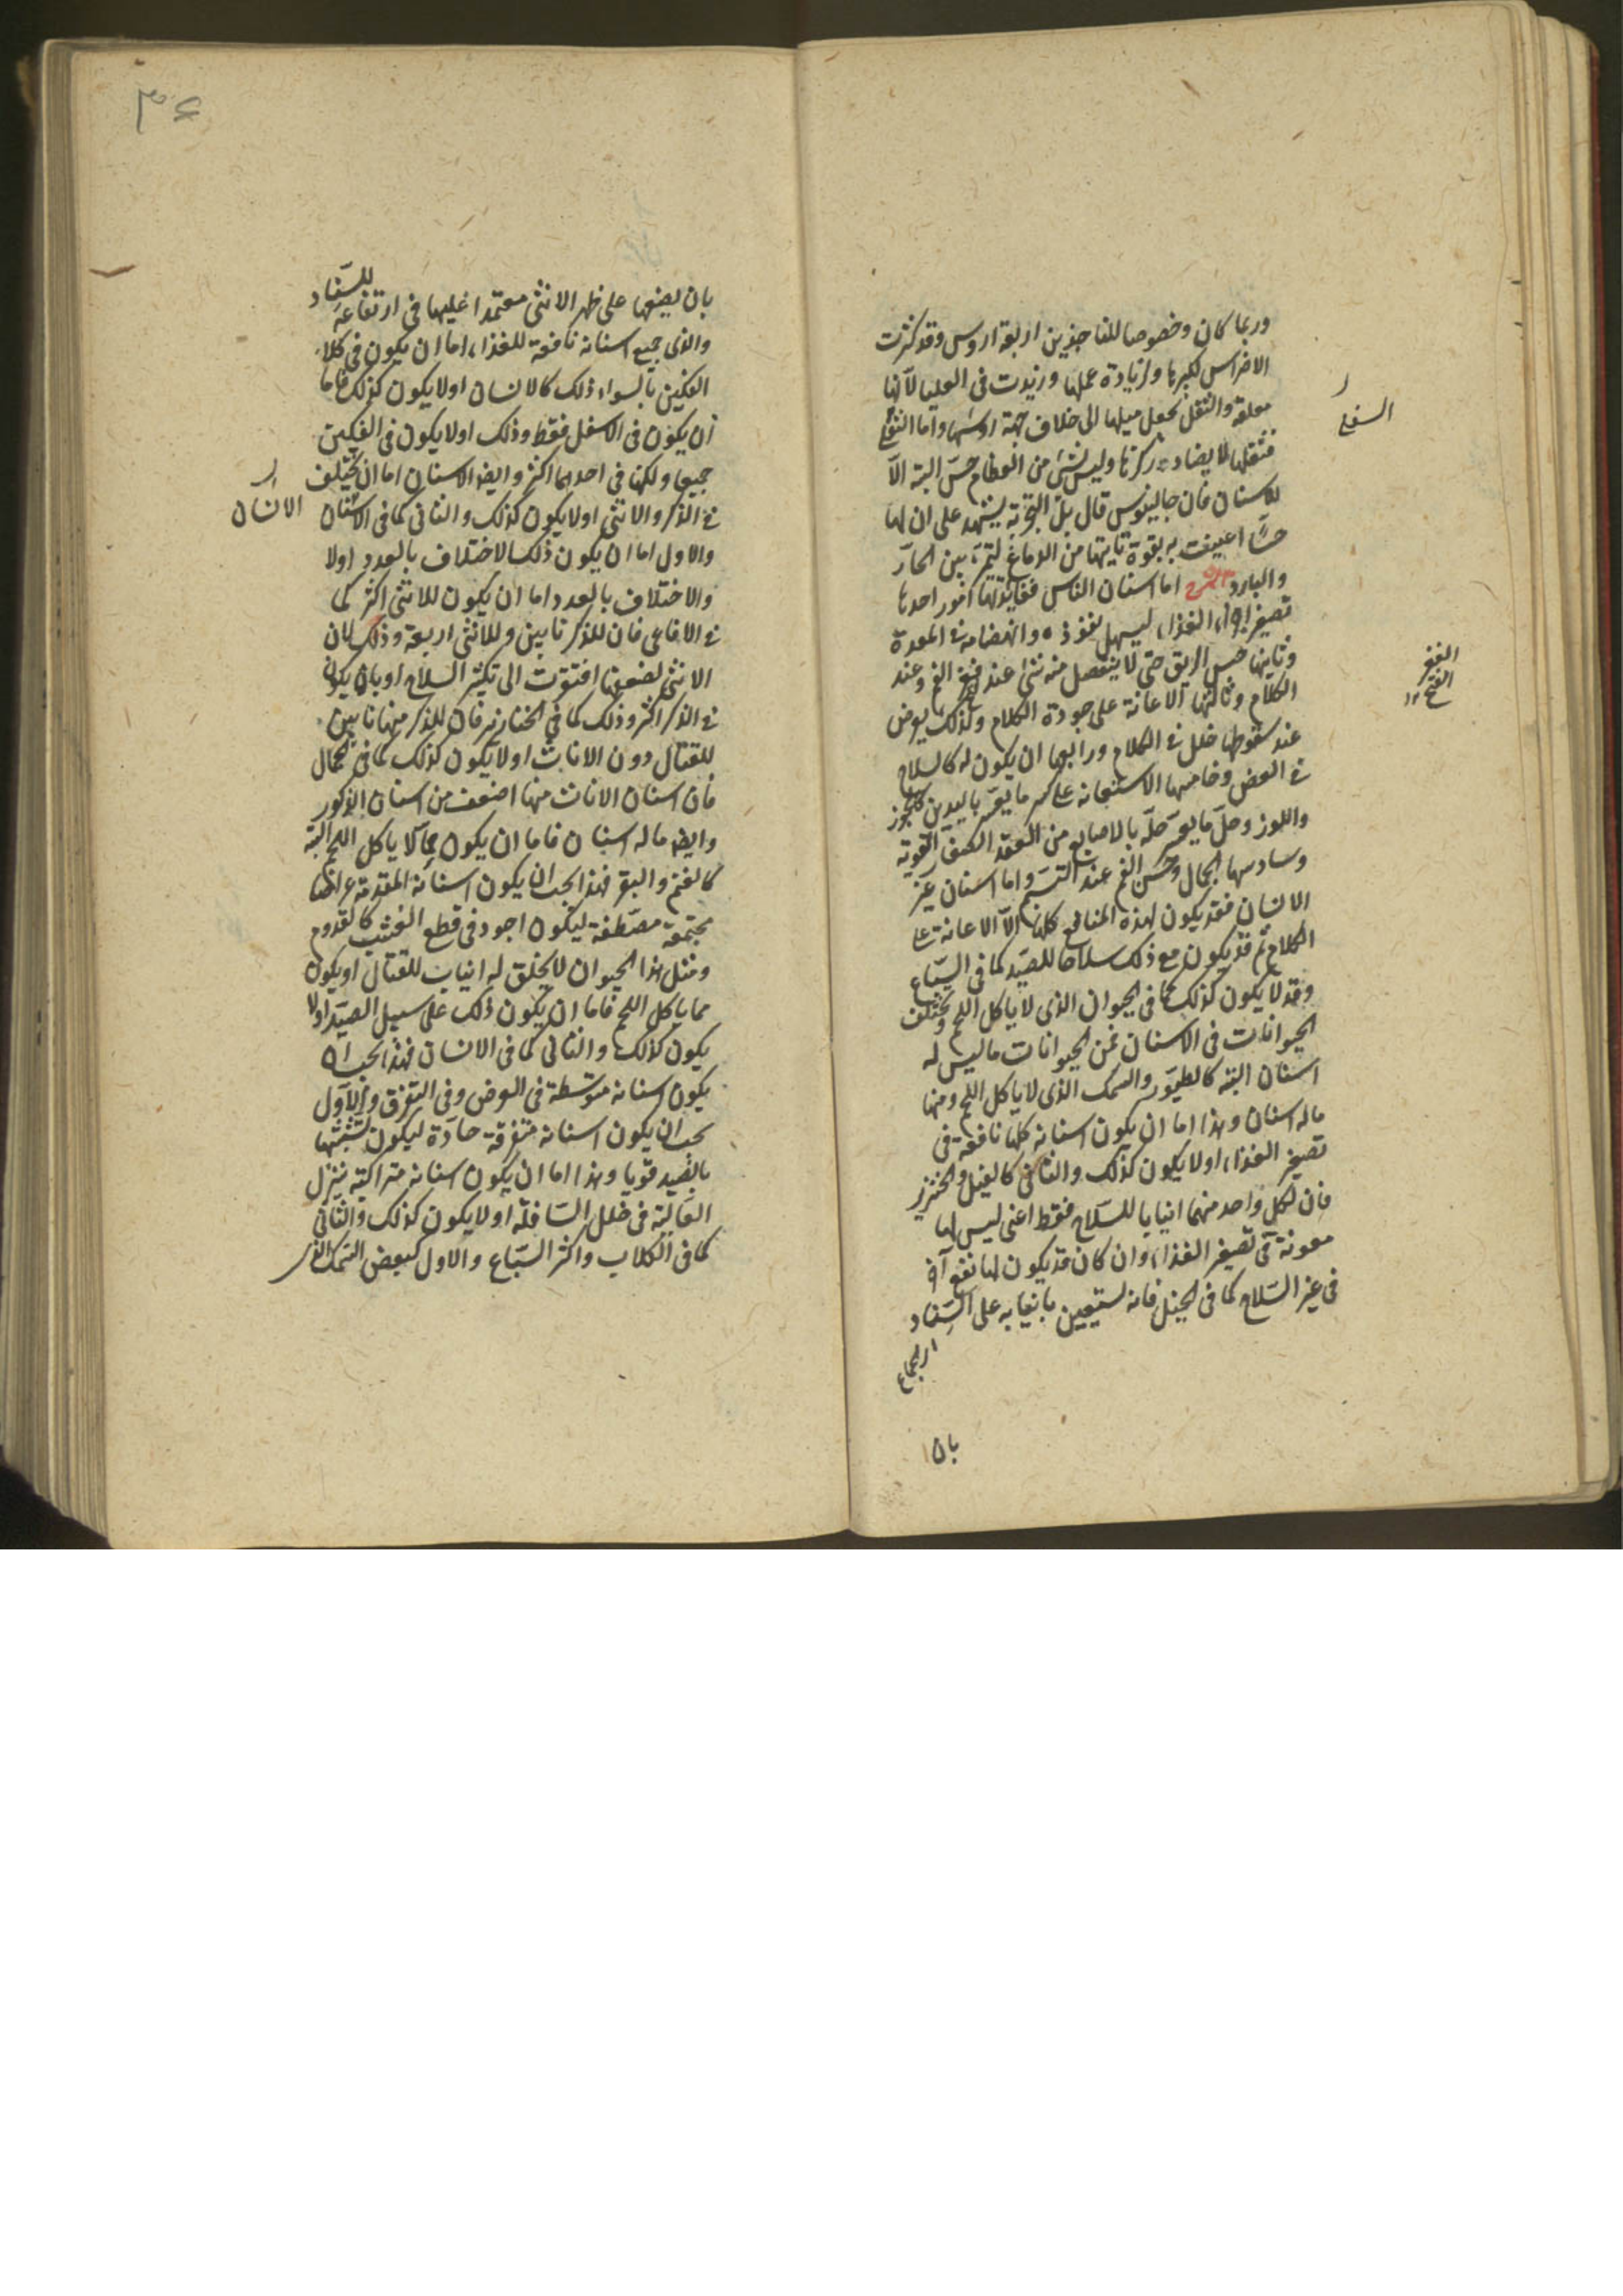 وربما كان وخصوصا للناجذين اربعة اروس وقد كثرت
الاضراس لكبرها ولزيادة عملها وزيدت فى العليا لأنها
معلقة والثقل يجعل ميلها الى خلاف جهة اروسها واما السفلى
فثقلها لا يضاد ركزها وليس لشئ من العظام حسّ البتة الّا
للاسنان فان جالينوس قال بل التجربة يشهد على ان لها
حسًّا اعينت به بقوة تأتيها من الدماغ لتميّز بين الحارّ
والبارد الشرح اما اسنان الناس ففايدتها امور احدها
تصغير اجزاء الغذاء ليسهل نفوذه وانهضامه فى المعدة
وثانيها حبس الريق حتى لا ينفصل منه شئ عند فتح الفم وعند
الكلام وثالثها الاعانة على جودة الكلام وكذلك يعرض
عند سقوطها خلل فى الكلام ورابعها ان يكون له كالسلاح
فى العض وخامسها الاستعانة على كسر ما يعسر باليدين كالجوز
واللوز وحلّ ما يعسر حلّه بالاصابع من العقد القوية
وسادسها الجمال وحسن الفم عند التبسّم واما اسنان غير
الانسان فقد يكون لهذه المنافع كلها الّا الاعانة على
الكلام ثم قد يكون مع ذلك سلاحا للصيد كما فى السباع
وقد لا يكون كذلك كما فى الحيوان الذى لا ياكل اللحم وتختلف
الحيوانات فى الاسنان فمن الحيوانات ما ليس له
اسنان البتة كالطيور والسمك الذى لا ياكل اللحم ومنها
ما له اسنان وهذا اما ان يكون اسنانه كلها نافعة فى
تصغير الغذاء اولا يكون كذلك والثانى كالفيل والخنزير
فان لكل واحد منهما انيابا للسلاح فقط اعنى ليس لها
معونة فى تصغير الغذاء وان كان قد يكون لها نفع آخر
فى غير السلاح كما فى الفيل فانه يستعين بانيابه على السِّفاد
اى الجماع
بان
السفلى
الفتح
بان يضعها على ظهر الانثى معتمدا عليها فى ارتفاعه للسِّفاد
والذى جميع اسنانه نافعة للغذاء اما ان يكون فى كلا
الفكين بالسواء ذلك كالانسان اولا يكون كذلك فاما
ان يكون فى الاسفل فقط وذلك اولا يكون فى الفكين
جميعا ولكنها فى احدهما اكثر وايضا الاسنان اما ان تختلف
فى الذكر والانثى اولا يكون كذلك والثانى كما فى الانسان
والاول اما ان يكون ذلك الاختلاف بالعدد اولا
والاختلاف بالعدد اما ان يكون للانثى اكثر كما
فى الافاعى فان للذكر نابين وللانثى اربعة وذلك لان
الانثى لضعفها افتقرت الى تكثير السلاح او بان يكون
فى الذكر اكثر وذلك كما فى الخنازير فان للذكر منها نابين
للقتال دون الاناث اولا يكون كذلك كما فى الجمال
فان اسنان الاناث منها اضعف من اسنان الذكور
وايضا ما له اسنان فاما ان يكون مما لا ياكل اللحم البتة
كالغنم والبقر فهذا يجب ان يكون اسنانه المقدمة عراضا
مجتمعة مصطفة ليكون اجود فى قطع العشب كالقدوم
ومثل هذا الحيوان لا يخلق له انياب للقتال او يكون
مما ياكل اللحم فاما ان يكون ذلك على سبيل الصيد اولا
يكون كذلك والثانى كما فى الانسان فهذا يجب ان
يكون اسنانه متوسطة فى العرض وفى التفرق والاول
يجب ان يكون اسنانه متفرقة حادّة ليكون تشبثها
بالصيد قويا وهذا اما ان يكون اسنانه متراكبة ينزل
العالية فى خلل السافلة اولا يكون كذلك والثانى
كما فى الكلاب واكثر السباع والاول كبعض السمك الذى
الانسان